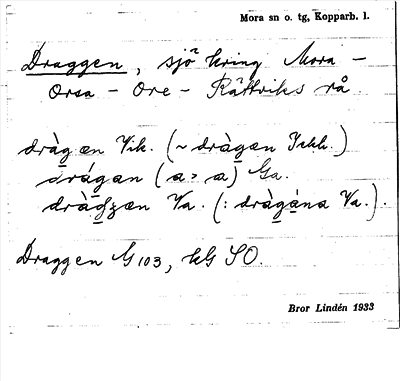 Mora sn o. tg, Kopparb. l.
Draggen, sjö kring Mora –
Orsa – Ore – Rättviks rå.
dràgæn Vik. (~ dràgæn
drágæn (a > a) Ga.
dràgæn Va. (: dràgána Va.).
Draggen G 103, kG SO.
Bror Lindén 1933